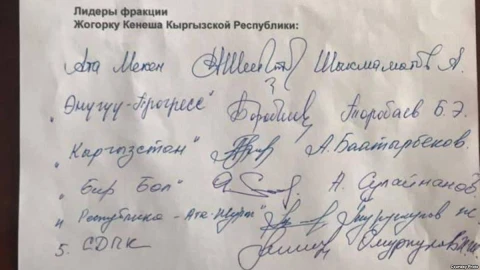 Лидеры фракции
Жогорку Кенеша Кыргызской Республики:
Ата Мекен Шыкмаматов А.
"Өнүгүү-Прогресс" Торобаев Б.Э.
"Кыргызстан" А. Баатырбеков.
"Бир Бол" А. Сулайманов
"Республика-Ата-Журт"
5. СДПК
Courtesy Photo